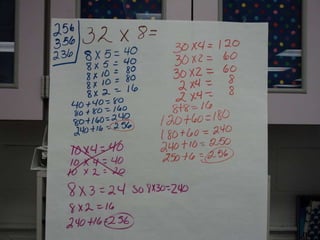 256
356
236
32 x 8=
8 x 5 = 40
8 x 5 = 40
8 x 10 = 80
8 x 10 = 80
8 x 2 = 16
40 + 40 = 80
80 + 80 = 160
80 + 160 = 240
240 + 16 = 256
10 x 4 = 40
10 x 4 = 40
10 x 2 = 20
8 x 3 = 24 so 8x30=240
8 x 2 = 16
240 + 16 = 256
30 x 4 = 120
30 x 2 = 60
30 x 2 = 60
2 x 4 = 8
2 x 4 = 8
8+8 = 16
120 + 60 = 180
180 + 60 = 240
240 + 10 = 250
250 + 6 = 256